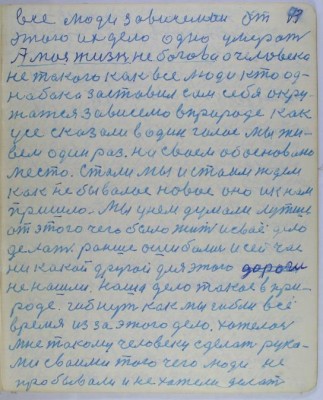 все люди зависемои от 17
этого их дело одно умерать
А моя жизн не богова а человека
не такого как все люди кто од-
на бока заставил сам себя окру-
жатся Зависемо в природе как
усе сказали в один голос мы жи-
вем один раз. На своем обоснованом
место. Стали мы и стоим ждем
как небывалое новое оно и к нам
пришло. Мы у нем думали лутше
от этого чего было жить и своё дело
делать раньше ошибались и сей час
ни какой другой для этого дороги
не нашли. Наша дело такое в при-
роде. гибнут как мы гибли всё
время из за этого дело. хотелось
мне такому человеку сделать рука-
ми своими того чего люди не
пробывали и не хотели делать